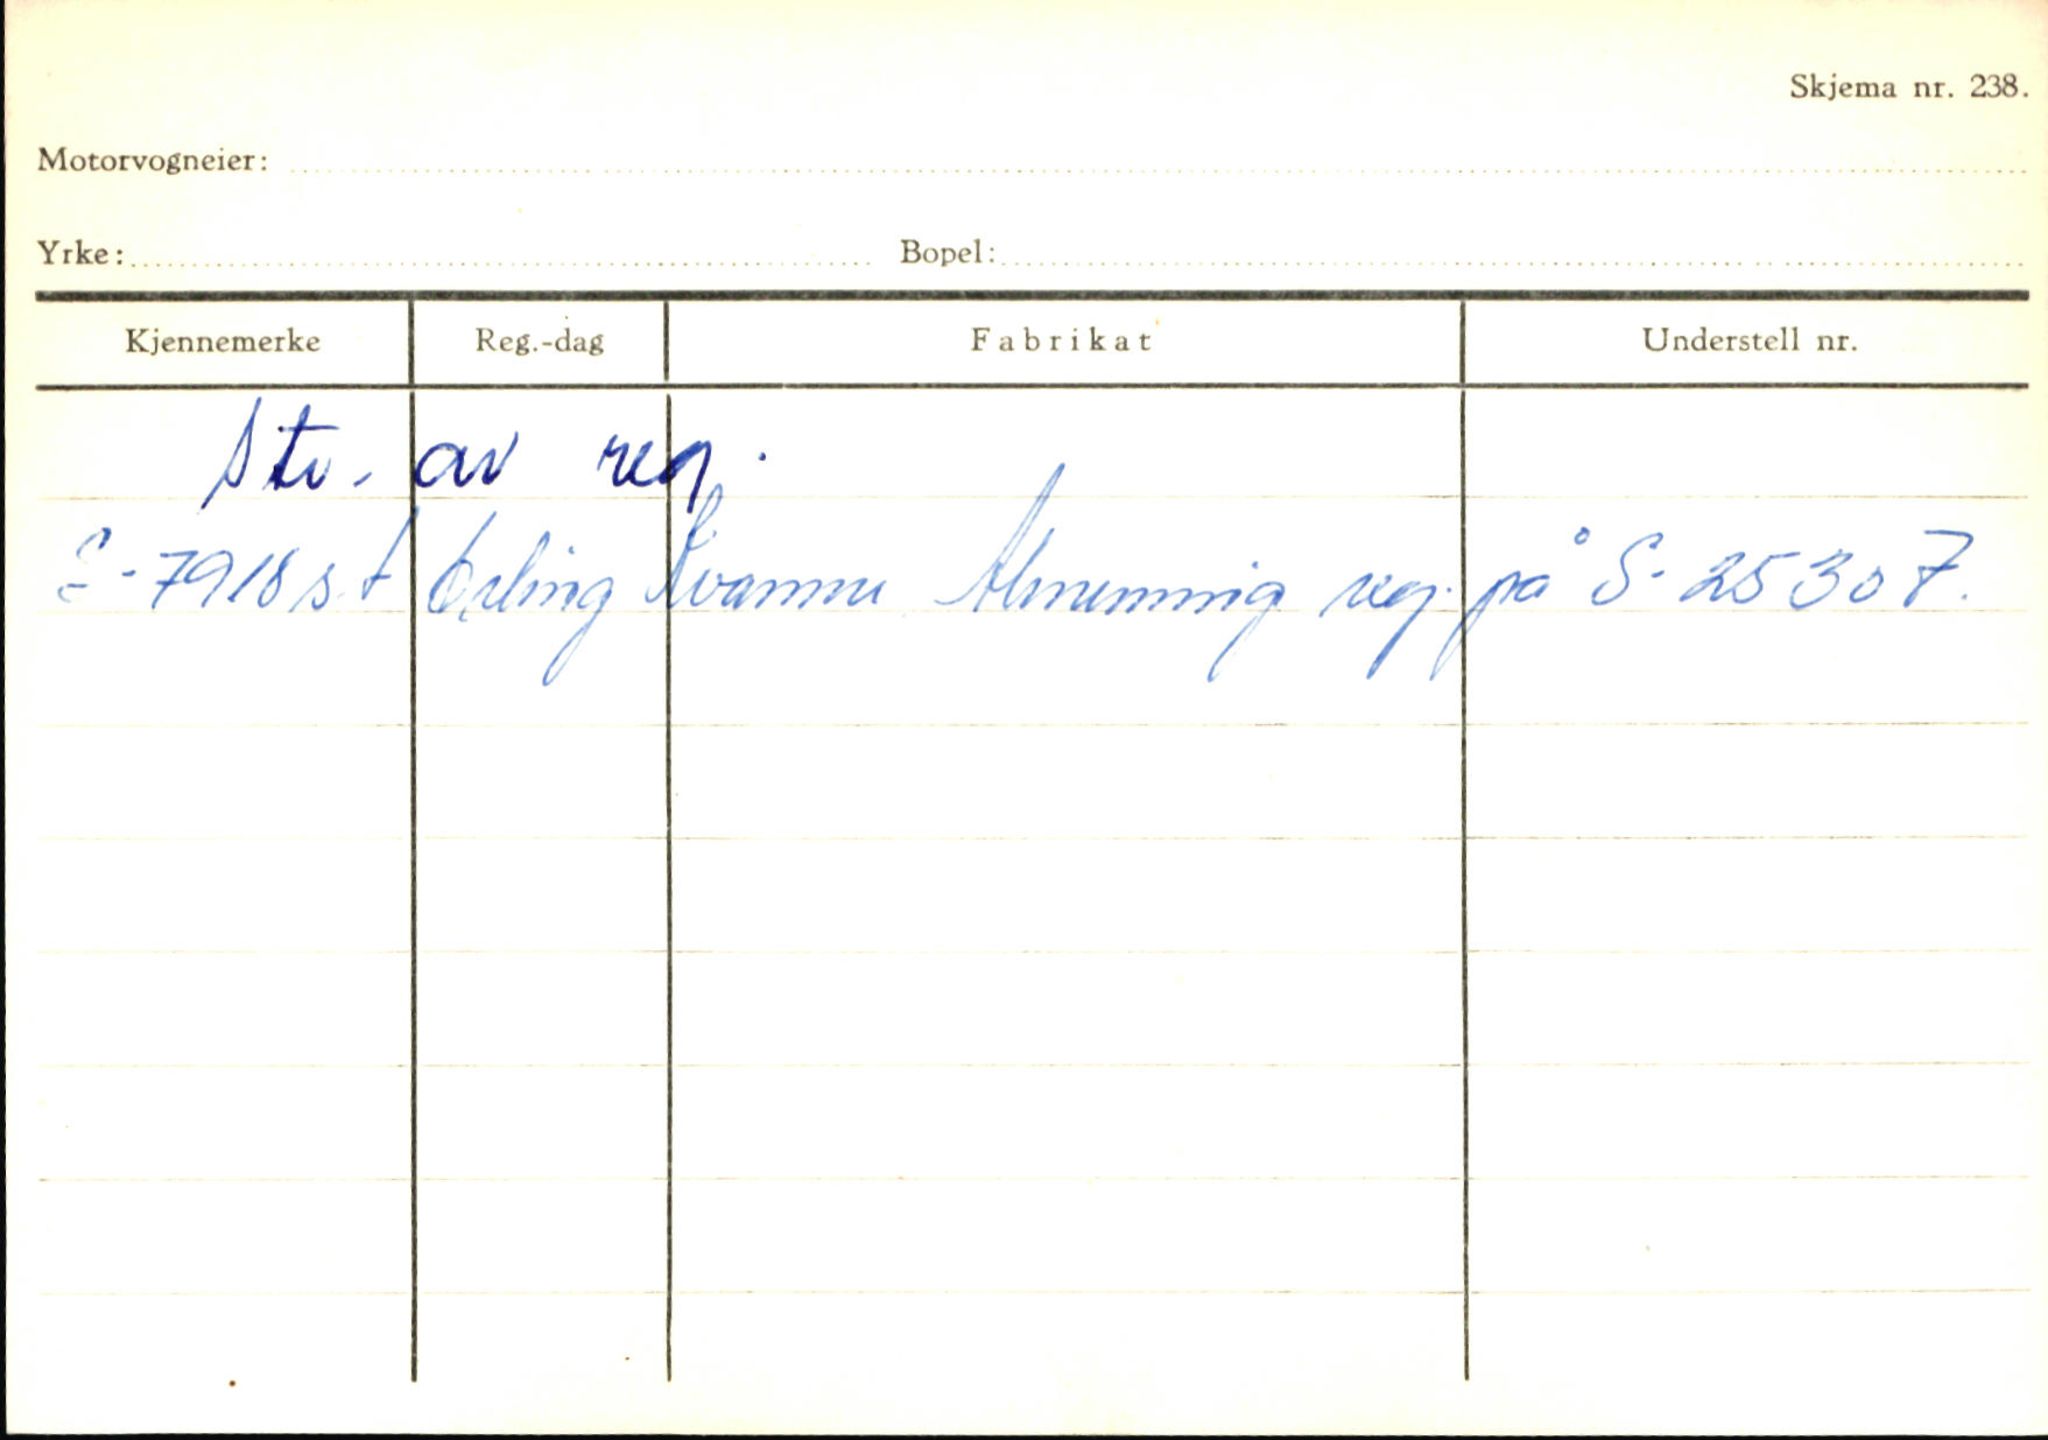 Skjema nr. 238.
Motorvogneier:
Yrke: Bopel:
Kjennemerke Reg.-dag Fabrikat Understell nr.
Str. av reg.
S-7918 s.t Erling Almenning reg. på S-25307.